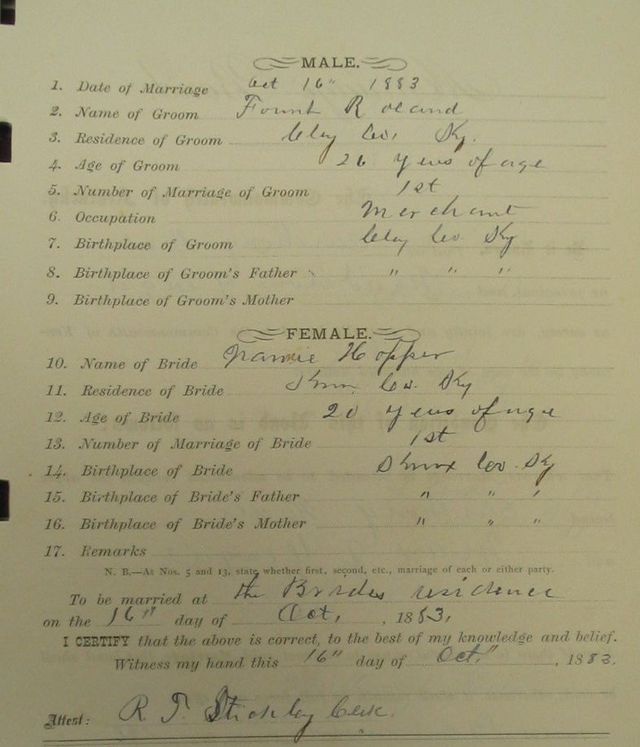 MALE.
1. Date of Marriage Oct 16" 1883
2. Name of Groom Fount Roland
3. Residence of Groom Clay Co. Ky.
4. Age of Groom 26 years of age
5. Number of Marriage of Groom 1st
6. Occupation Merchant
7. Birthplace of Groom Clay Co. Ky
8. Birthplace of Groom's Father " " "
9. Birthplace of Groom's Mother
FEMALE.
10. Name of Bride Nannie Hopper
11. Residence of Bride Knox Co. Ky
12. Age of Bride 20 years of age
13. Number of Marriage of Bride 1st
14. Birthplace of Bride Knox Co. Ky
15. Birthplace of Bride's Father " " "
16. Birthplace of Bride's Mother " " "
17. Remarks
N. B.—At Nos. 5 and 13, state whether first, second, etc., marriage of each or either party.
To be married at the Brides residence
on the 16" day of Oct. , 1883.
I CERTIFY that the above is correct, to the best of my knowledge and belief.
Witness my hand this 16" day of Oct. , 1883.
Attest: R. T. Stickley Clerk.